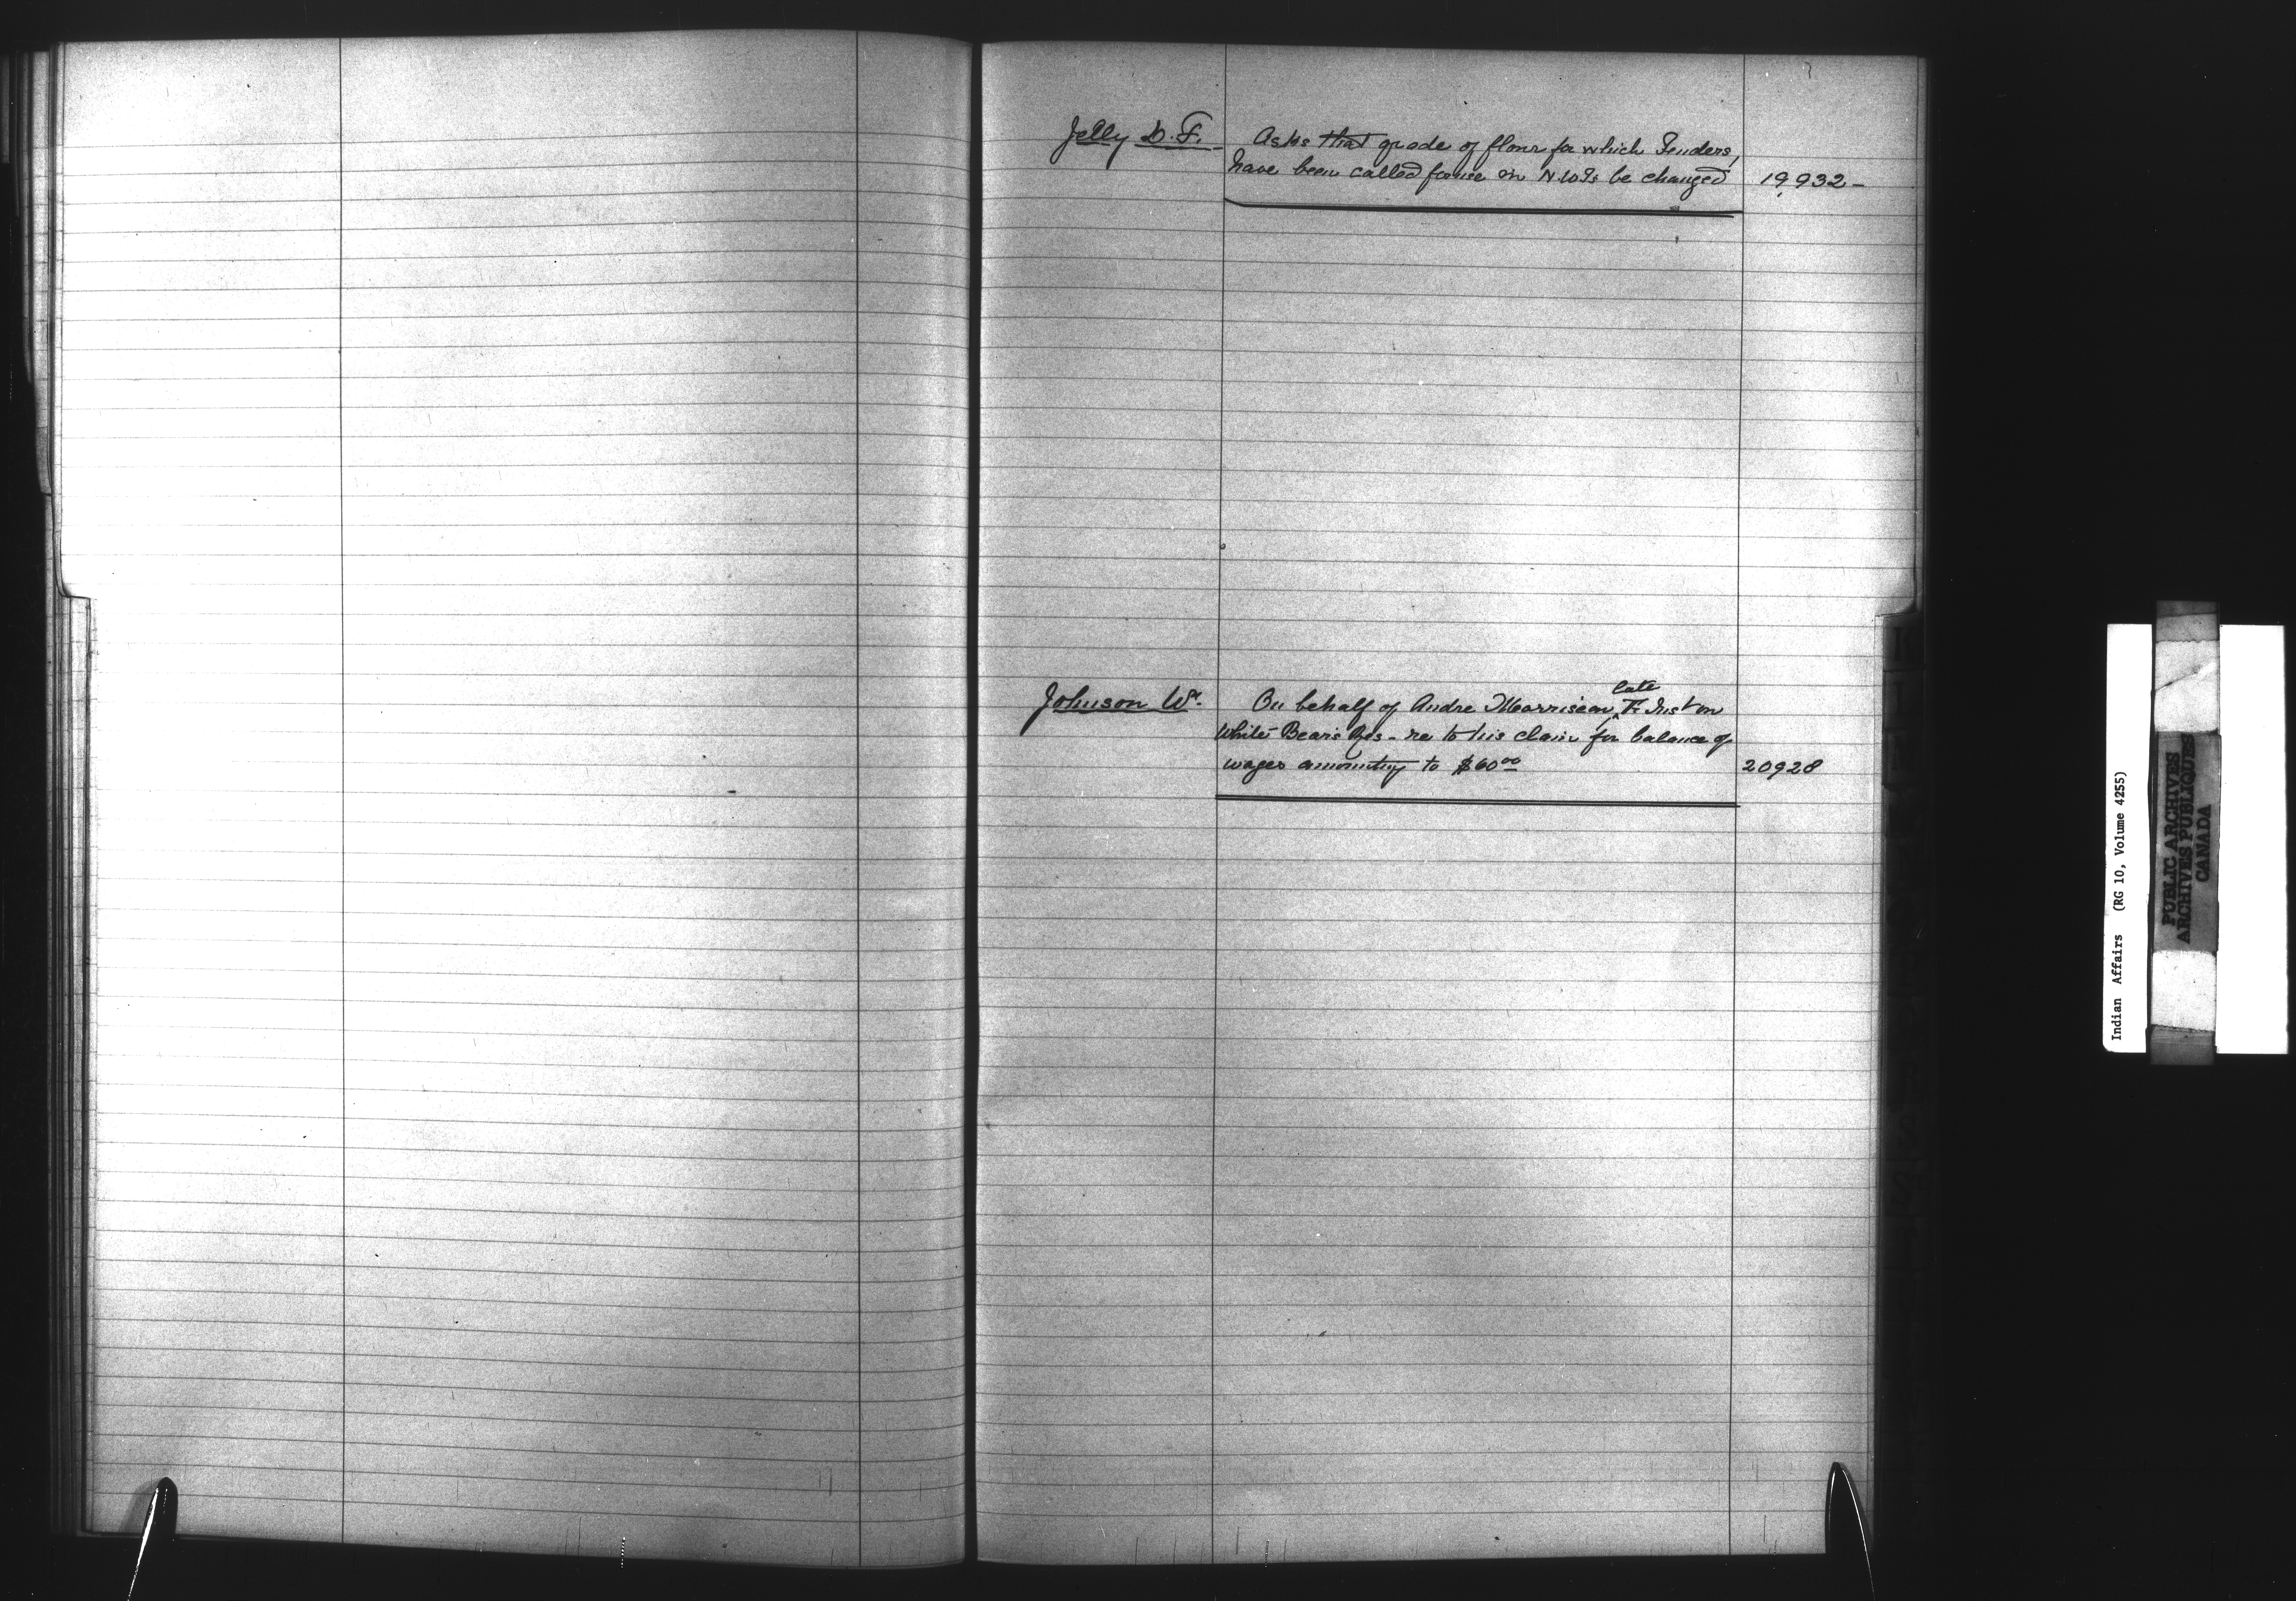 Jelly D. F. - Asks that grade of flour for which Tenders,
have been called for use in N.W.Ts be changed 19932 -
late
Johnson W. On behalf of Andre Morriseau, F. Inst on
White Bear's Res - re to his claim for balance of
wages amounting to $60.00 20928
Indian Affairs (RG 10, Volume 4255)
PUBLIC ARCHIVES
ARCHIVES PUBLIQUES
CANADA